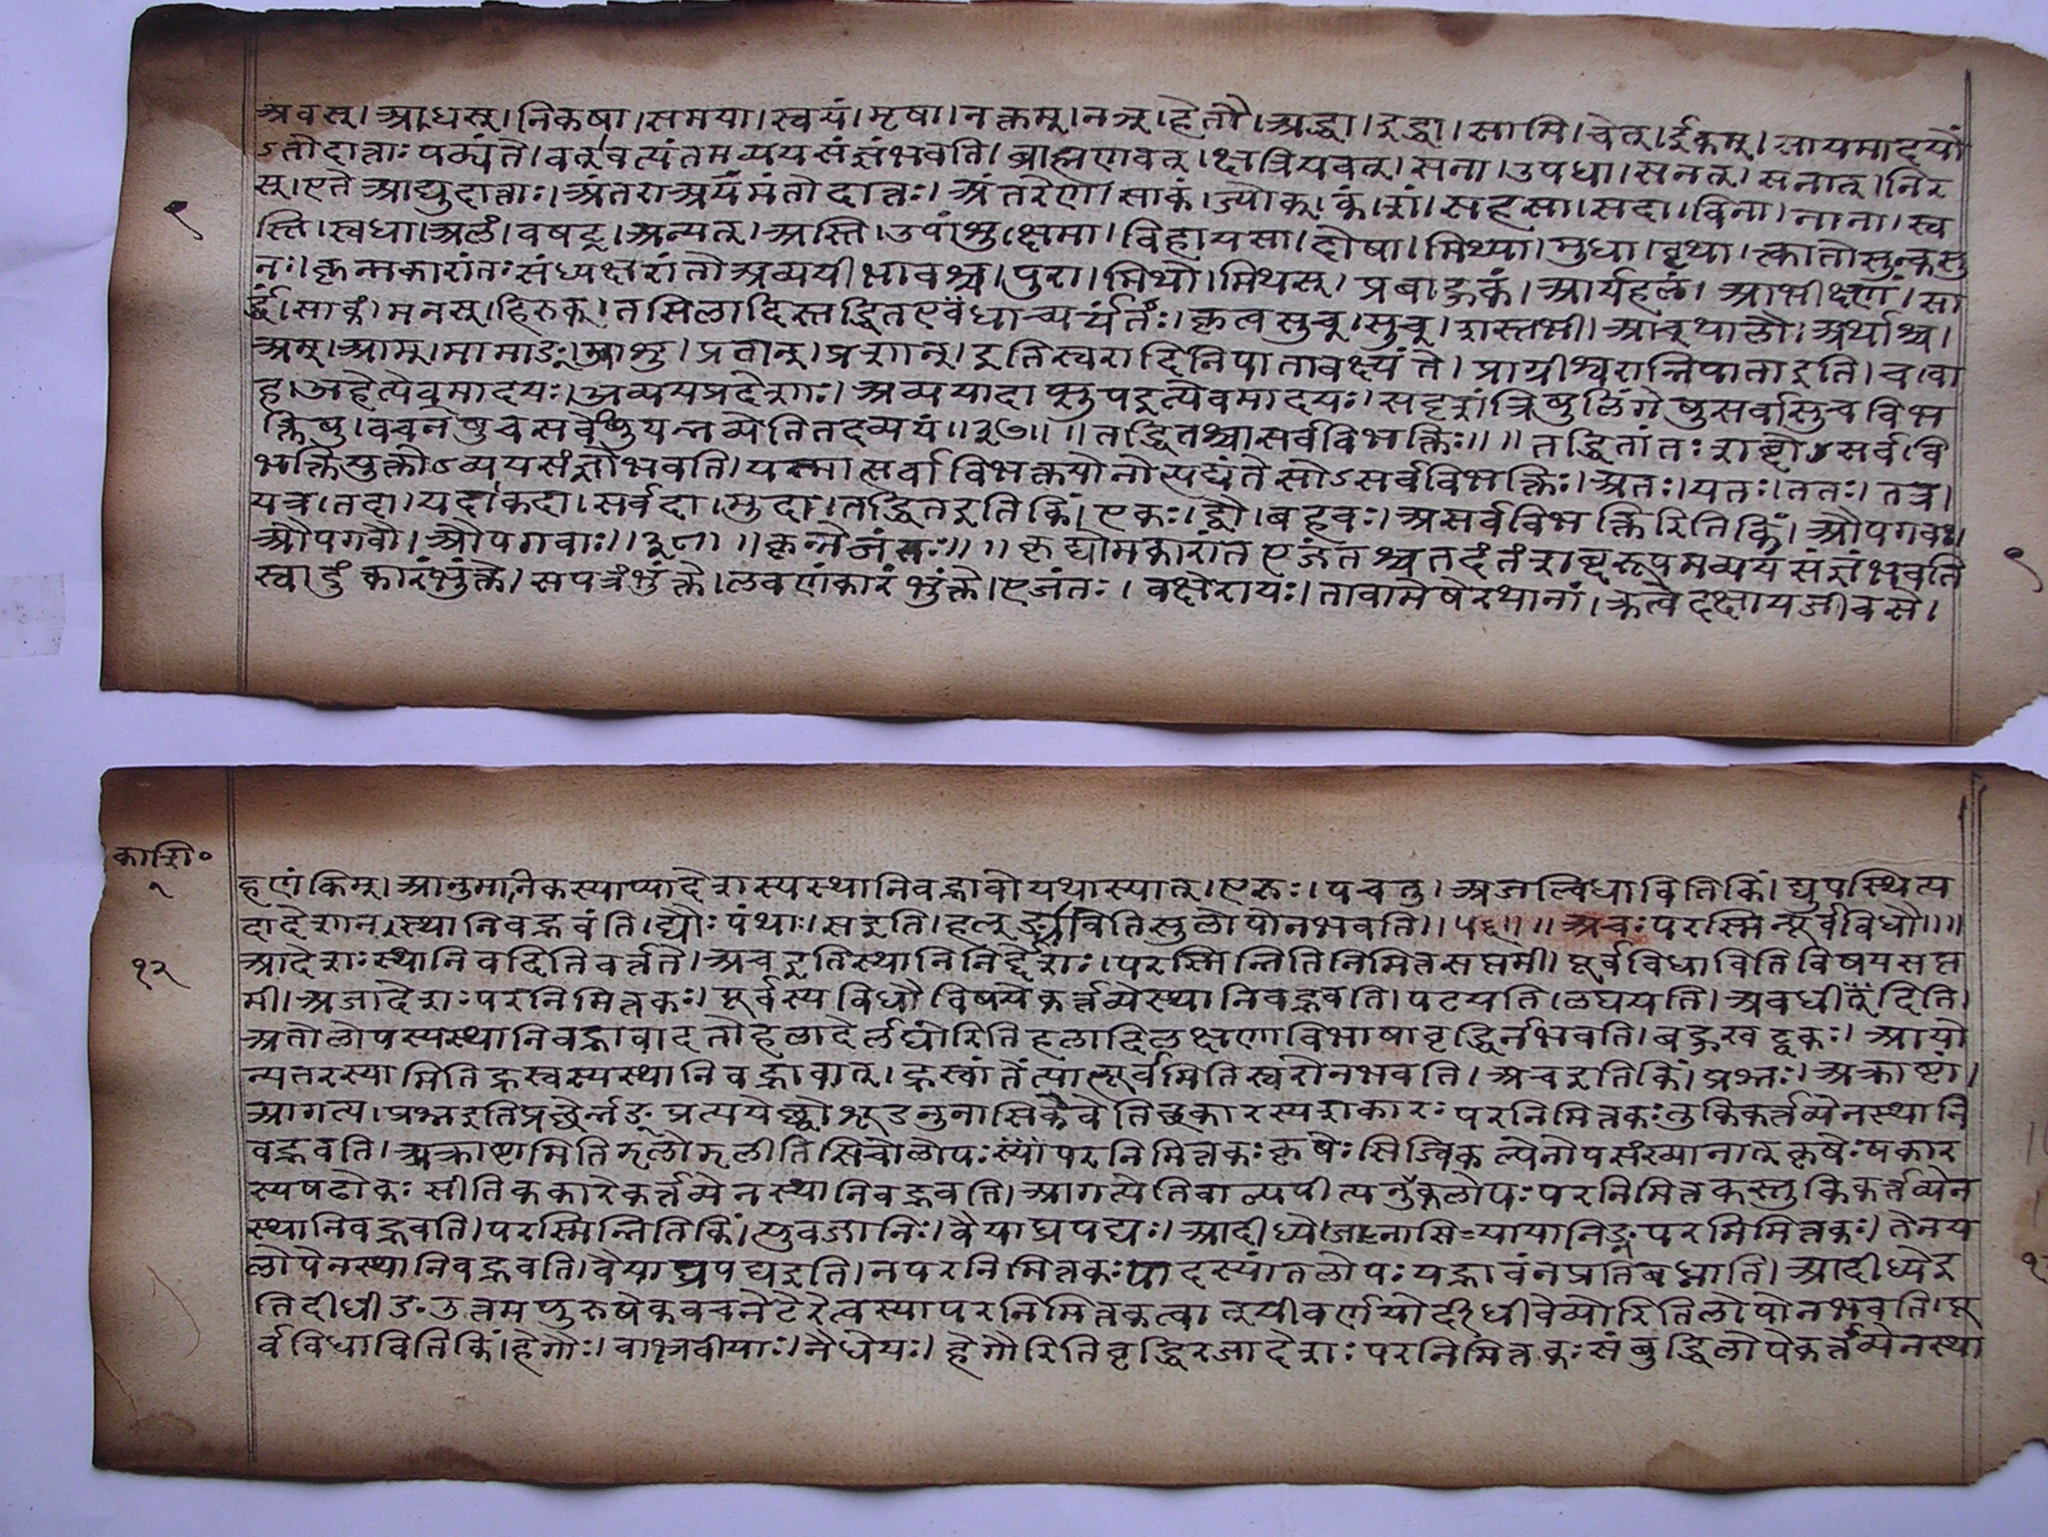 अवस्। अधस्। निकषा। समया। स्वयं। मृषा। नक्तम्। नञ्। हेतौ। अद्धा। इद्धा। सामि। चेत्। ईकम्। सायमादयों
ऽतोदात्ताः पठ्यंते। वत् वत्यंतमव्ययसंज्ञंभवति। ब्राह्मणवत्। क्षत्रियवत्। सना। उपधा। सनत्। सनात्। तिर
स्। एते आद्युदात्ताः। अंतरा अयमंतोदात्तः। अंतरेण। साकं। ज्योक्। कं। शं। सहसा। सदा। विना। नाना। स्व
९
स्ति। स्वधा। अलं। वषट्। अन्यत्। अस्ति। उपांशु। क्षमा। विहायसा। दोषा। मिथ्या। मुधा। वृथा। त्कातोसुन्कसु
नः। कृन्मकारांतः संध्यक्षरांतो अव्ययीभावश्च। पुरा। मिथो। मिथस्। प्रबाहुकं। आर्यहलं। आभीक्ष्णं। सा
र्द्धं। साकं। मनस्। हिरुक्। तसिलादिस्तद्धित एधाच्पर्यंतः। कृत्वसुच्। सुच्। शस्तसी। आच्थालौ। अर्थाश्च।
अम्। आम्। मामाङ्। आशु। प्रतान्। प्रशान्। इतिस्वरादिनिपातावक्ष्यंते। प्राग्रीश्वरान्निपाताइति। च। वा
ह। अहेत्येवमादयः। अव्ययप्रदेशाः। अव्ययादाप्सुपइत्येवमादयः। सदृशंत्रिषुलिंगेषुसर्वासुचविभ
क्तिषु। वचनेषुचसर्वेषुयन्नव्येतितदव्ययं॥३७॥ ॥तद्धितश्चासर्वविभक्तिः॥ ॥तद्धितांतः शब्दोऽसर्ववि
भक्तियुक्तोऽव्ययसंज्ञोभवति। यस्मात्सर्वाविभक्तयोनोत्पद्यंते सोऽसर्वविभक्तिः। अतः। यतः। ततः। तत्र।
यत्र। तदा। यदा। कदा। सर्वदा। मुदा। तद्धितइतिकिं। एकः। द्वौ। बहवः। असर्वविभक्तिरितिकिं। औपगवः।
औपगवौ। औपगवाः॥३८॥ ॥कृन्मेजंतः॥ ॥कृद्योमकारांत एजंतश्चतदंतंशब्दरूपमव्ययसंज्ञंभवति
९
स्वादुंकारंभुंक्ते। सपन्नंभुंक्ते। लवणंकारंभुंक्ते। एजंतः। वक्षेरायः। तावामेषेरथानां। क्रत्वेदक्षायजीवसे।
काशि०
१
हणंकिम्। आनुमानिकस्याप्यादेशस्यस्थानिवद्भावोयथास्यात्। एरुः। पचतु। अनल्विधावितिकिं। द्युपथित्य
दादेशान स्थानिवद्भवंति। द्यौः पंथाः। सइति। हल्ङ्याबितिसुलोपोनभवति॥५६॥ ॥अचः परस्मिन्पूर्वविधौ॥ ॥
१२
आदेशः स्थानिवदितिवर्त्तते। अचइतिस्थानिनिर्द्देशः। परस्मिन्नितिनिमित्तसप्तमी। पूर्वविधावितिविषयसप्त
मी। अजादेशः परनिमित्तकः। पूर्वस्यविधौविषयेकर्त्तव्येस्थानिवद्भवति। पटयति। लघयति। अवधीदिति।
अतोलोपस्यस्थानिवद्भावादतोहलादेर्लघोरितिहलादिलक्षणाविभाषावृद्धिर्नभवति। बहुखट्वकः। आपो
न्यतरस्यामितिह्रस्वस्यस्थानिवद्भावात्। ह्रस्वांतेंत्यात्पूर्वमितिस्वरोनभवति। अचइतिकिं। प्रश्नः। अक्राष्टां।
आगत्य। प्रश्नइतिप्रछेर्नङ्प्रत्ययेच्छ्वोःशूडनुनासिकेचेतिछकारस्यशकारः परनिमित्तकःतुकिकर्त्तव्येनस्थानि
वद्भवति। अक्राष्टामितिझलोझलीतिसिचोलोपः परनिमित्तकः कृषेः सिज्विकल्पेनोपसंख्यानात्कृषेः षकार
स्यषढोकः सीतिककारेकर्त्तव्येनस्थानिवद्भवति। आगत्येतिवाल्यपीत्यनुकलोपः परनिमित्तकस्तुकिकर्त्तव्येन
स्थानिवद्भवति। परस्मिन्नितिकिं। युवजानिः। वैयाघ्रपद्यः। आदीध्ये। जायायानिङ् परनिमित्तकः। तेनय
लोपेनस्थानिवद्भवति। वैयाघ्रपद्यइति। नपरनिमित्तकः पादस्यांतलोपः पद्भावंनप्रतिबध्नाति। आदीध्येइ
तिदीधीङः उत्तमपुरुषैकवचनेटेरेत्वस्यापरनिमित्तकत्वात् यीवर्णयोर्दीधीवेव्योरितिलोपोनभवति। पू
र्वविधावितिकिं। हेगौः। वाभ्रवीयाः। नैधेयः। हेगौरितिवृद्धिरजादेशः परनिमित्तकः संबुद्धिलोपेकर्त्तव्येनस्था